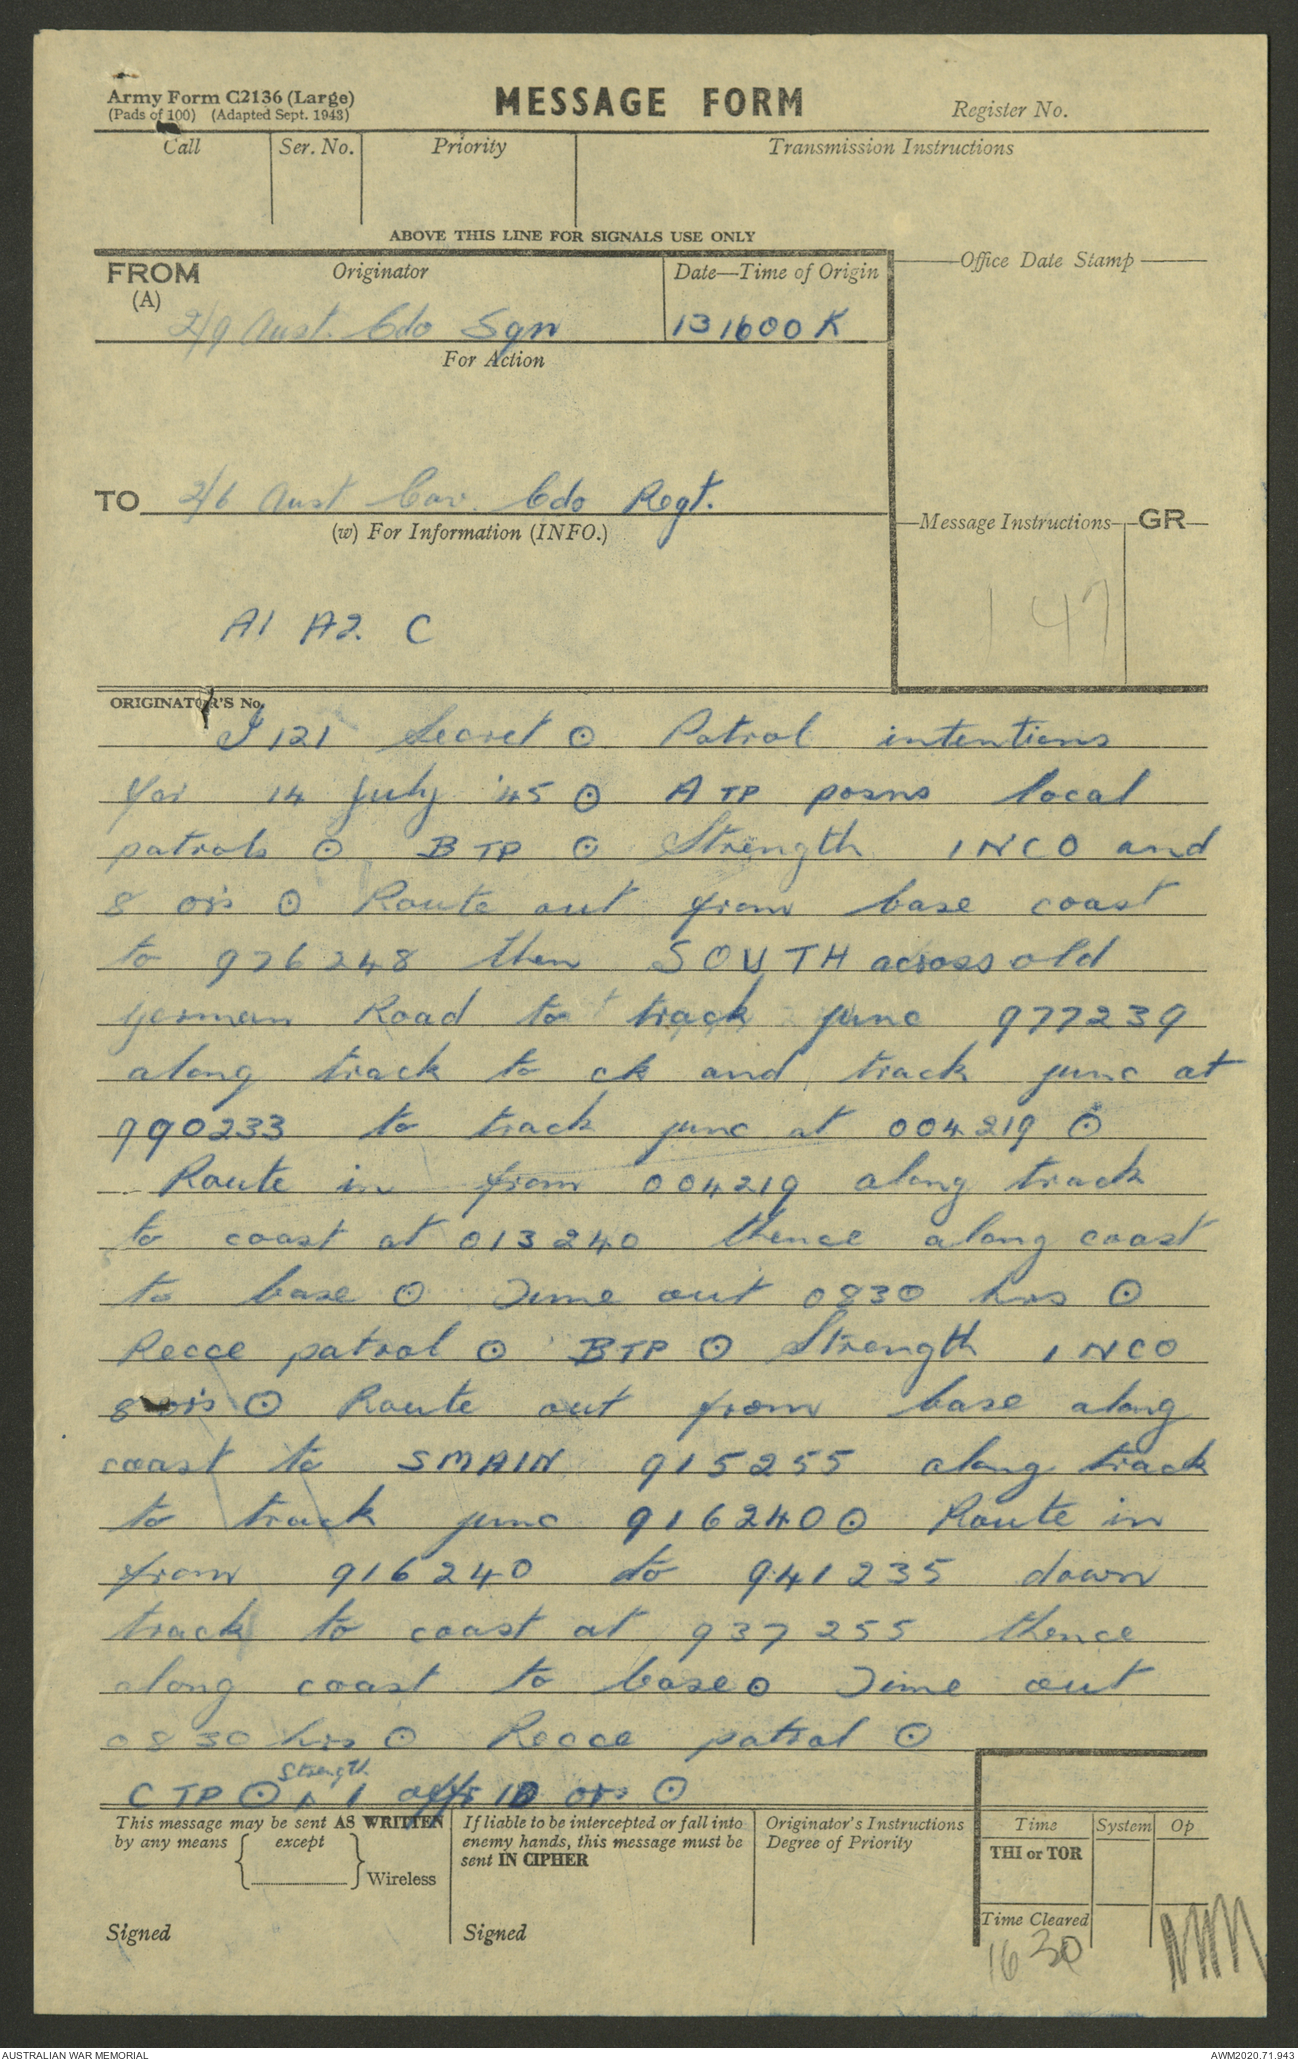 Army Form C2136 (Large)
(Pads of 100) (Adapted Sept. 1943)
MESSAGE FORM
Register No.
Call Ser. No. Priority Transmission Instructions
ABOVE THIS LINE FOR SIGNALS USE ONLY
FROM (A) Originator Date—Time of Origin Office Date Stamp
2/9 Aust. Cdo Sqn 131600 K
For Action
TO 2/6 Aust Cav. Cdo Regt.
(w) For Information (INFO.)
Message Instructions GR
A1 A2 C
147
ORIGINATOR'S No.
I 121 Secret ⊙ Patrol intentions
for 14 July '45 ⊙ A TP posns local
patrols ⊙ B TP ⊙ Strength 1 NCO and
8 ors ⊙ Route out from base coast
to 976248 then SOUTH across old
german Road to track junc 977239
along track to ck and track junc at
990233 to track junc at 004219 ⊙
Route in from 004219 along track
to coast at 013240 thence along coast
to base ⊙ Time out 0830 hrs ⊙
Recce patrol ⊙ B TP ⊙ Strength 1 NCO
8 ors ⊙ Route out from base along
coast to SMAIN 915255 along track
to track junc 916240 ⊙ Route in
from 916240 to 941235 down
track to coast at 937255 thence
along coast to base ⊙ Time out
0830 hrs ⊙ Recce patrol ⊙
C TP ⊙ ^ Strength 1 offr 10 ors ⊙
This message may be sent AS WRITTEN
by any means { except } Wireless
Signed
If liable to be intercepted or fall into
enemy hands, this message must be
sent IN CIPHER
Signed
Originator's Instructions
Degree of Priority
Time System Op
THI or TOR
Time Cleared
1630
AUSTRALIAN WAR MEMORIAL AWM2020.71.943